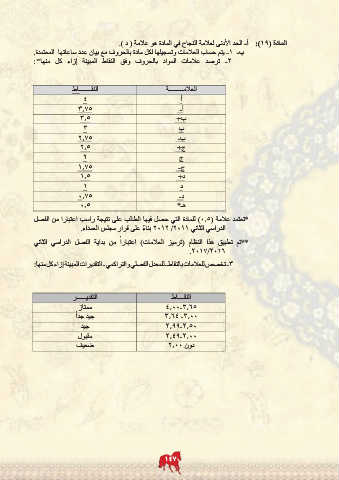 المادة (١٩): أ- الحد الأدنى لعلامة النجاح في المادة هو علامة ( د ).
ب- ١- يتم حساب العلامات وتسجيلها لكل مادة بالحروف مع بيان عدد ساعاتها المعتمدة.
٢- ترصد علامات المواد بالحروف وفق النقاط المبينة إزاء كل منها**:
العلامــــــة النقــــــاط
أ ٤
أ- ٣,٧٥
ب+ ٣,٥
ب ٣
ب- ٢,٧٥
ج+ ٢,٥
ج ٢
ج- ١,٧٥
د+ ١,٥
د ١
د- ٠,٧٥
هـ* ٠,٥
*تعتمد علامة (٠,٥) للمادة التي حصل فيها الطالب على نتيجة راسب اعتباراً من الفصل
الدراسي الثاني ٢٠١١/ ٢٠١٢ بناءً على قرار مجلس العمداء.
**تم تطبيق هذا النظام (ترميز العلامات) إعتباراً من بداية الفصل الدراسي الثاني
٢٠١٧/٢٠١٦.
٣- تخصص للعلامات بالنقاط، للمعدل الفصلي والتراكمي، التقديرات المبينة إزاء كل منها:
النقـــاط التقديـــر
٣,٦٥-٤,٠٠ ممتاز
٣,٠٠-٣,٦٤ جيد جداً
٢,٥٠-٢,٩٩ جيد
٢,٠٠-٢,٤٩ مقبول
دون ٢,٠٠ ضعيف
١٤٧